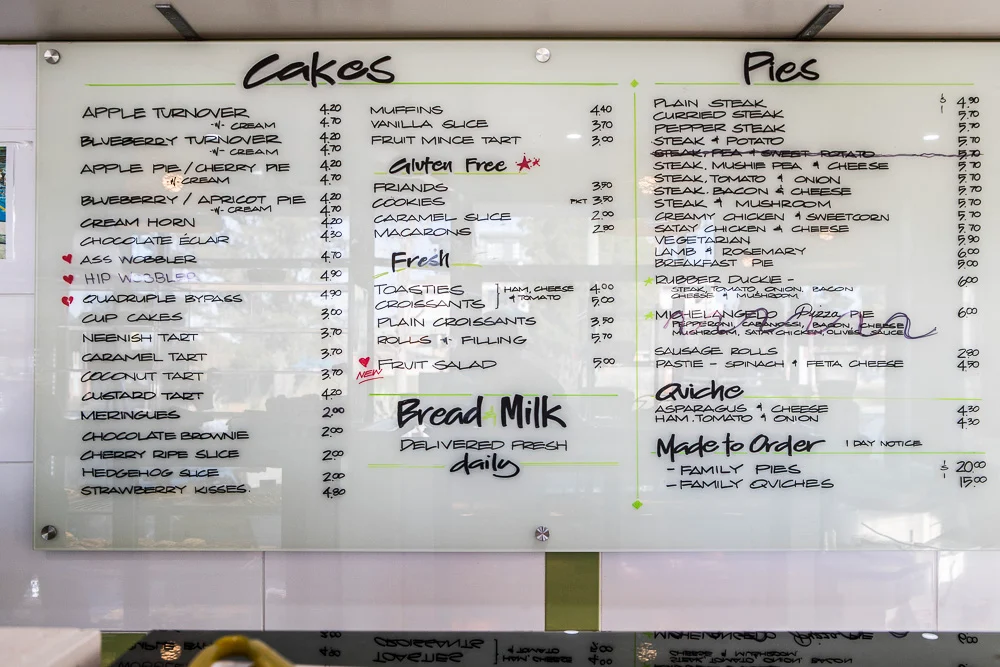 Cakes
APPLE TURNOVER 4.20
-w- CREAM 4.70
BLUEBERRY TURNOVER 4.20
-w- CREAM 4.70
APPLE PIE/CHERRY PIE 4.20
-w- CREAM 4.70
BLUEBERRY / APRICOT PIE 4.20
-w- CREAM 4.70
CREAM HORN 4.20
CHOCOLATE ÉCLAIR 4.30
ASS WOBBLER 4.70
HIP WOBBLER 4.90
QUADRUPLE BYPASS 4.90
CUP CAKES 3.00
NEENISH TART 3.70
CARAMEL TART 3.70
COCONUT TART 3.70
CUSTARD TART 4.20
MERINGUES 2.00
CHOCOLATE BROWNIE 2.00
CHERRY RIPE SLICE 2.00
HEDGEHOG SLICE 2.00
STRAWBERRY KISSES. 4.80
MUFFINS 4.40
VANILLA SLICE 3.70
FRUIT MINCE TART 3.00
Gluten Free
FRIANDS 3.50
COOKIES PKT 3.50
CARAMEL SLICE 2.00
MACARONS 2.80
Fresh
TOASTIES HAM, CHEESE 4.00
CROISSANTS & TOMATO 5.00
PLAIN CROISSANTS 3.50
ROLLS & FILLING 5.70
FRUIT SALAD 5.00
NEW
Bread & Milk
DELIVERED FRESH
daily
Pies
PLAIN STEAK $ 4.90
CURRIED STEAK 5.70
PEPPER STEAK 5.70
STEAK & POTATO 5.70
STEAK, PEA & SWEET POTATO 5.70
STEAK, MUSHIE PEA & CHEESE 5.70
STEAK, TOMATO & ONION 5.70
STEAK, BACON & CHEESE 5.70
STEAK & MUSHROOM 5.70
CREAMY CHICKEN & SWEETCORN 5.70
SATAY CHICKEN & CHEESE 5.70
VEGETARIAN 5.90
LAMB & ROSEMARY 6.00
BREAKFAST PIE 5.00
RUBBER DUCKIE - 6.00
STEAK, TOMATO, ONION, BACON
CHEESE & MUSHROOM.
MICHELANGELO Pizza PIE 6.00
PEPPERONI, CABANOSSI, BACON, CHEESE
MUSHROOM, SATAY CHICKEN, OLIVES, SAUCE
SAUSAGE ROLLS 2.80
PASTIE - SPINACH & FETA CHEESE 4.50
Quiche
ASPARAGUS & CHEESE 4.30
HAM, TOMATO & ONION 4.30
Made to Order 1 DAY NOTICE
- FAMILY PIES $ 20.00
- FAMILY QUICHES 15.00